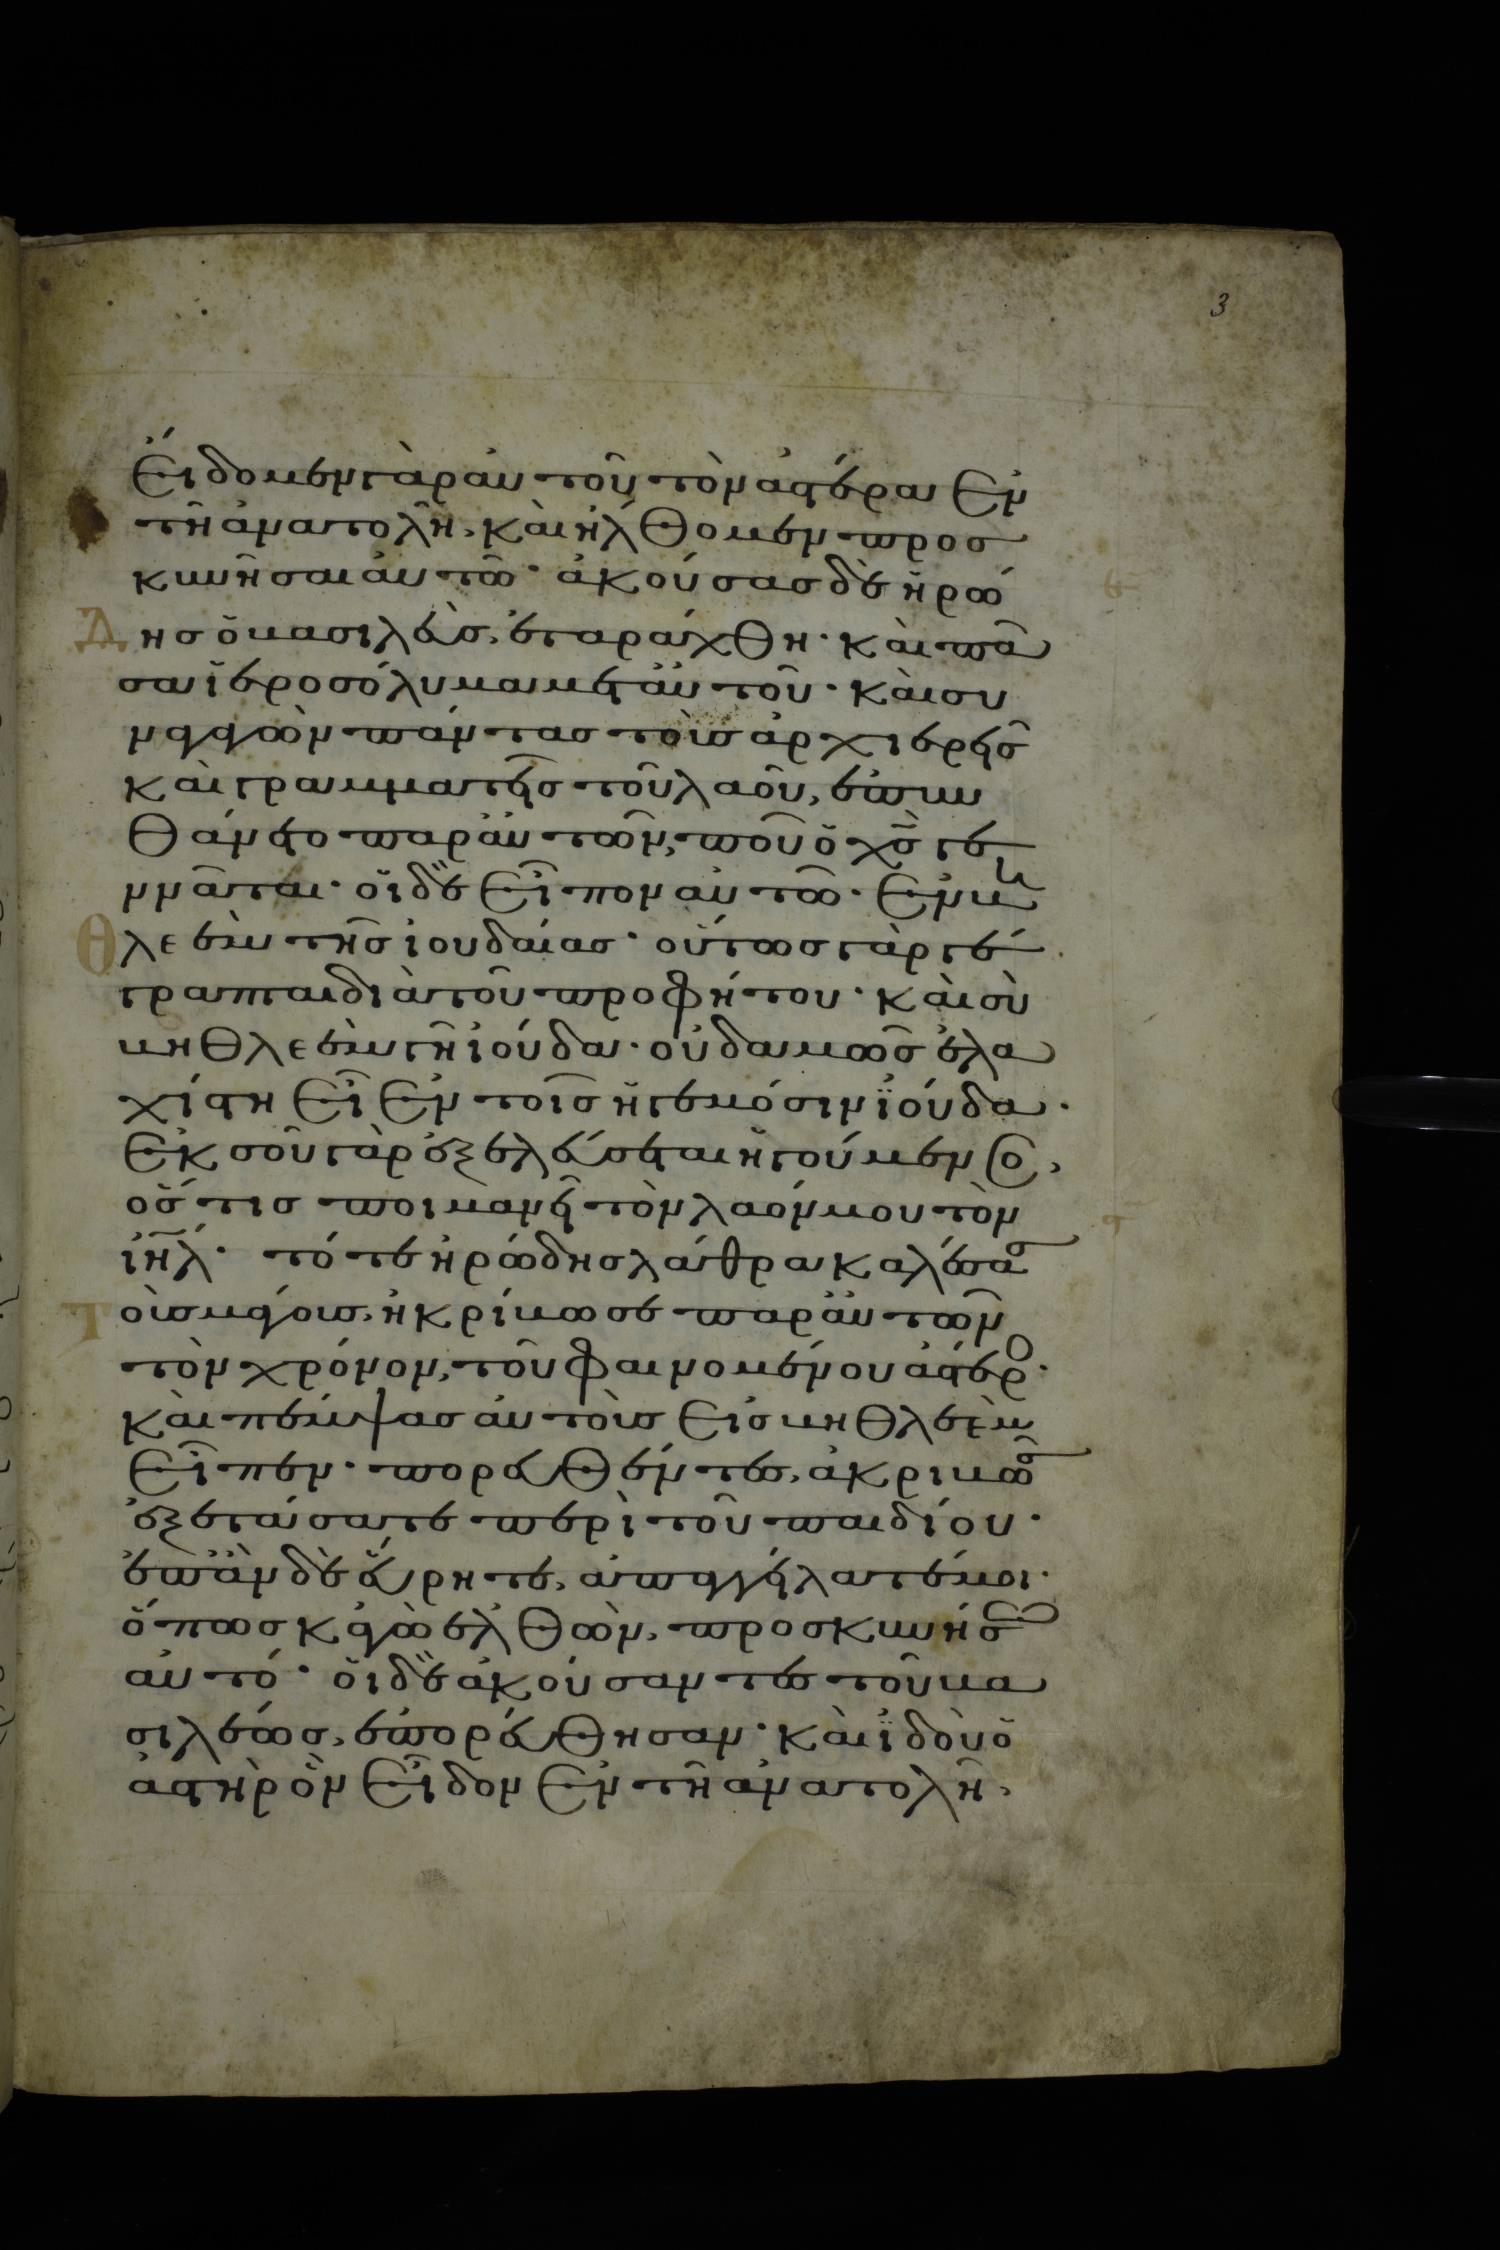 3
εἴδομεν γὰρ αὐτοῦ τὸν ἀστέρα ἐν
τῆ ἀνατολῆ, καὶ ἤλθομεν προσ
κυνῆσαι αὐτῶ· ἀκούσας δὲ ἡρώ
δης ὁ βασιλεὺς, ἐταράχθη· καὶ πᾶ
σα ἱεροσόλυμα μετ αὐτοῦ· καὶ συ
ναγαγὼν πάντας τοὺς ἀρχιερεῖς
καὶ γραμματεῖς τοῦ λαοῦ, ἐπυν
θάνετο παρ αὐτῶν, ποῦ ὁ χς γε
ννᾶται· οἱ δὲ εἶπον αὐτῶ· ἐν βη
θλεεὲμ τῆς ἰουδαίας· οὕτως γὰρ γέ
γραπται διὰ τοῦ προφήτου· καὶ σὺ
βηθλεεὲμ γῆ ἰούδα· οὐδαμῶς ἐλα
χίστη εἶ ἐν τοῖς ἡγεμόσιν ἰούδα·
ἐκ σοῦ γὰρ ἐξελεύσεται ἡγούμενος,
ὅστις ποιμανεῖ τὸν λαόν μου τὸν
ιηλ· τότε ἡρώδης λάθρα καλέσας
τοὺς μάγους, ἠκρίβωσε παρ αὐτῶν
τὸν χρόνον, τοῦ φαινομένου ἀστέρο·
καὶ πέμψας αὐτοὺς εἰς βηθλεὲμ
εἶπεν· πορευθέντες, ἀκριβῶς
ἐξετάσατε περὶ τοῦ παιδίου·
ἐπὰν δὲ εὕρητε, ἀπαγγείλατέ μοι·
ὅπως κἀγὼ ἐλθὼν, προσκυνήσω
αὐτό· οἱ δὲ ἀκούσαντες τοῦ βα
σιλέως, ἐπορεύθησαν· καὶ ἰδοὺ ὁ
ἀστὴρ ὃν εἶδον ἐν τῆ ἀνατολῆ,